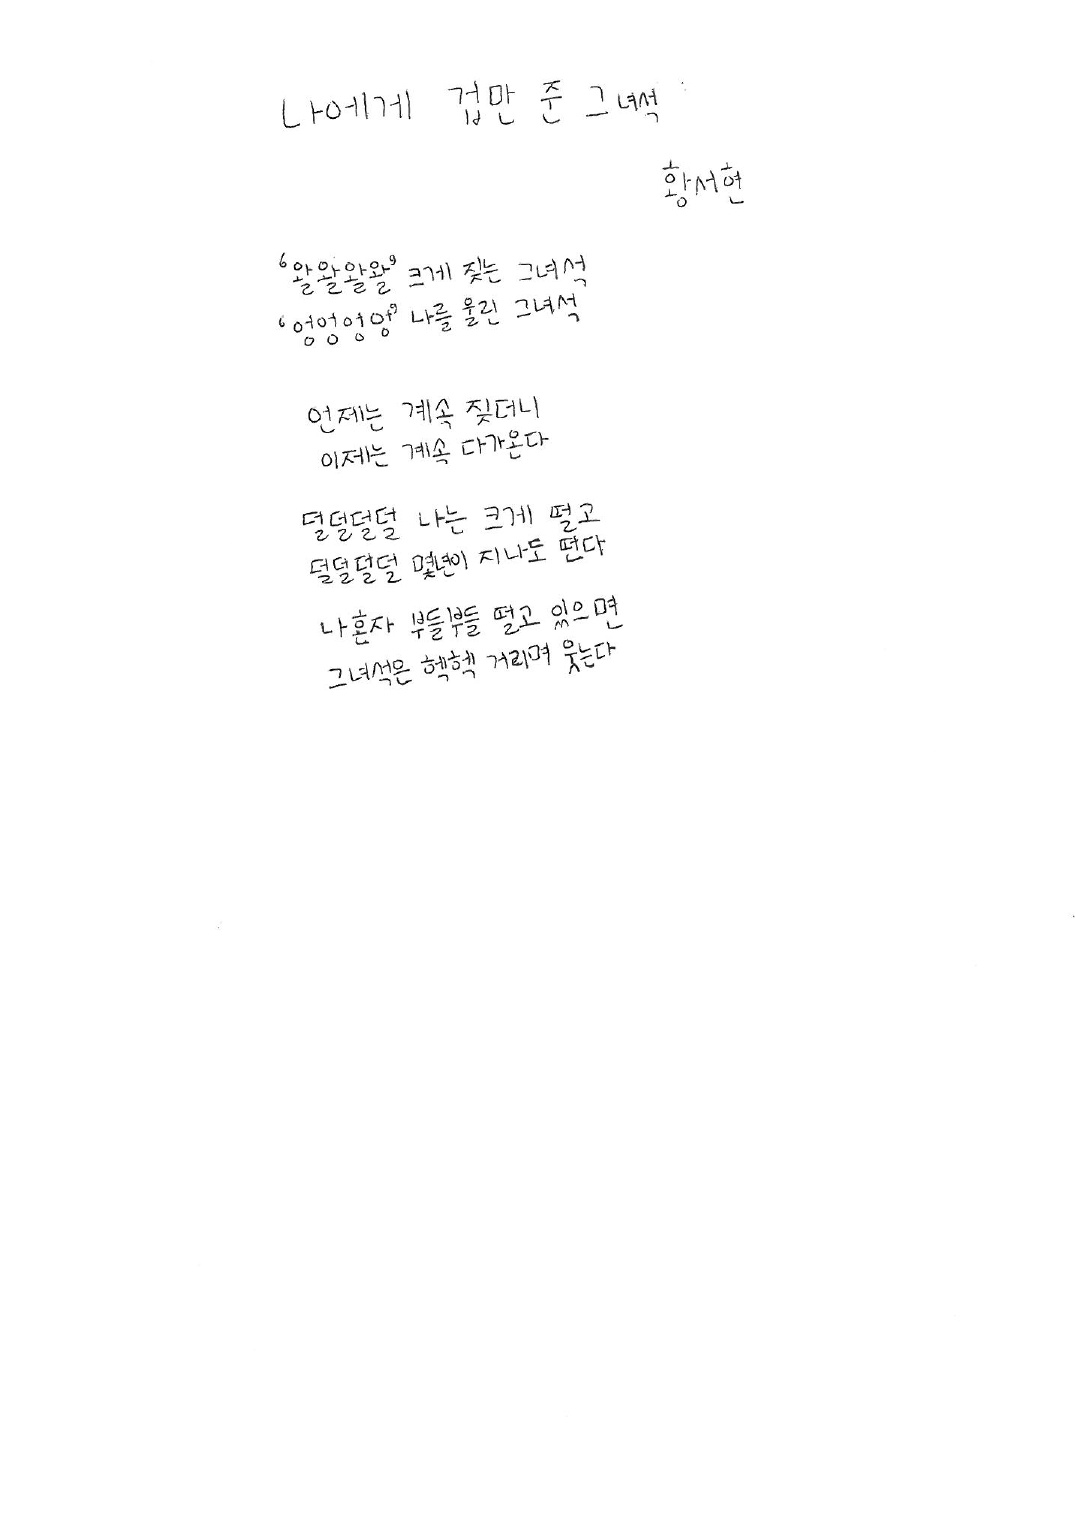 나에게 겁만 준 그녀석
황서현
‘왈왈왈왈’ 크게 짖는 그녀석
‘엉엉엉앙’ 나를 울린 그녀석
언제는 계속 짖더니
이제는 계속 다가온다
덜덜덜덜 나는 크게 떨고
덜덜덜덜 몇년이 지나도 떤다
나혼자 부들부들 떨고 있으면
그녀석은 헥헥 거리며 웃는다